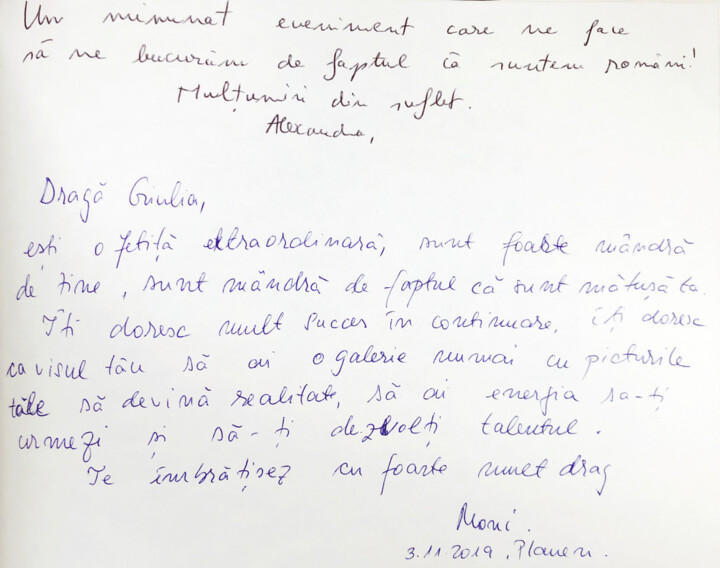 Un minunat eveniment care ne face
să ne bucurăm de faptul că suntem români!
Mulțumiri din suflet.
Alexandra,
Dragă Giulia,
ești o fetiță extraordinară, sunt foarte mândră
de tine, sunt mândră de faptul că sunt mătușă ta.
Îți doresc mult succes în continuare, îți doresc
ca visul tău să ai o galerie numai cu picturile
tale să devină realitate, să ai energia sa-ți
urmezi și să-ți dezvolți talentul.
Te îmbrățișez cu foarte mult drag
Moni.
3.11.2019, Planen.